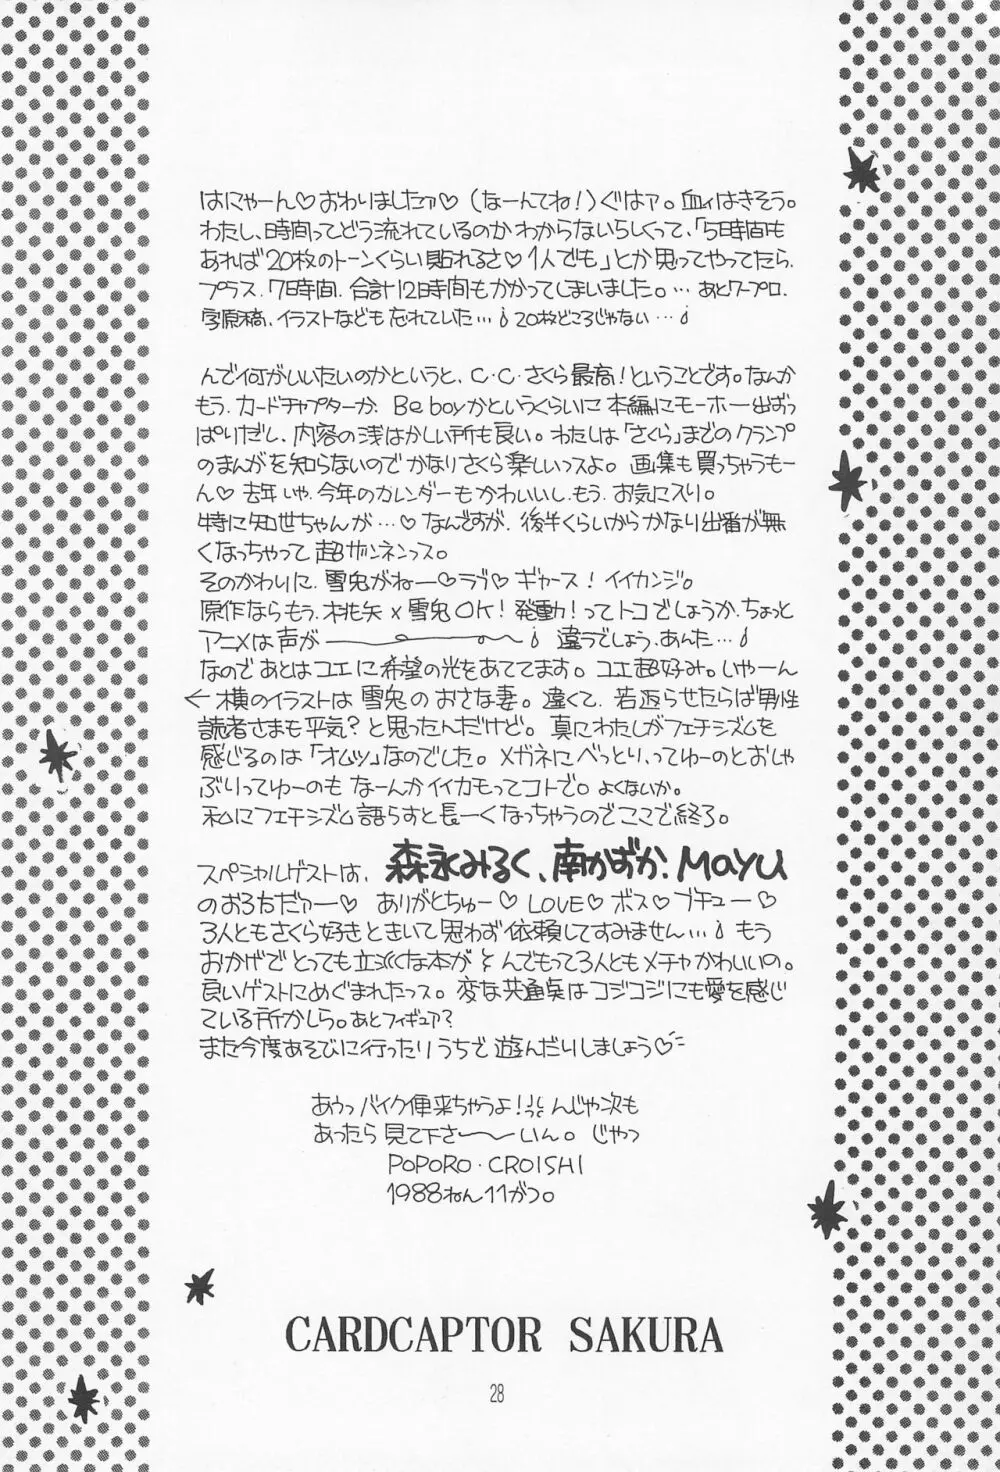 はにゃーん♡おわりましたァ♡(なーんてね!)ぐはァ。血ィはきそう。
わたし、時間ってどう流れているのかわからないらしくって、「5時間も
あれば20枚のトーンくらい貼れるさ♡1人でも」とか思ってやってたら、
プラス、7時間、合計12時間もかかってしまいました。…あとワープロ、
字原稿、イラストなども忘れていた…♩20枚どころじゃない…♩
んで何がいいたいのかというと、C・C・さくら最高!ということです。なんか
もう、カードチャプターか、Be boyかというくらいに本編にモーホー出ばっ
ぱりだし、内容の浅はかしい所も良い。わたしは「さくら」までのクランプ
のまんがを知らないのでかなりさくら楽しいっスよ。画集も買っちゃうもー
ん♡去年いや、今年のカレンダーもかわいいし、もう、お気に入り。
特に知世ちゃんが…♡なんですが、後半くらいからかなり出番が無
くなっちゃって超ザンネンっス。
そのかわりに、雪兎がねー♡ラブ♡ギャース!イイカンジ。
原作ならもう、桃矢×雪兎OK!発動!ってトコでしょうか、ちょっと
アニメは声が――♩違うでしょう、あんた…♩
なのであとはユエに希望の光をあててます。ユエ超好み。いやーん
←横のイラストは雪兎のおさな妻。違くて、若返らせたらば男性
読者さまも平気?と思ったんだけど。真にわたしがフェチシズムを
感じるのは「オムツ」なのでした。メガネにべっとり、ってゆーのとおしゃ
ぶりってゆーのもなーんかイイカモってコトで。よくないか。
私にフェチシズム語らすと長ーくなっちゃうのでここで終了。
スペシャルゲストは、森永みるく、南かずか、MAYU
のお3方だァー♡ありがとちゅー♡LOVE♡ボス♡ブチュー♡
3人ともさくら好きときいて思わず依頼してすみません…♩もう
おかげでとっても立派な本が とんでもって3人ともメチャかわいいの。
良いゲストにめぐまれたっス。変な共通点はコジコジにも愛を感じ
ている所かしら。あとフィギュア?
また今度あそびに行ったりうちで遊んだりしましょう♡
あうっバイク便来ちゃうよ! んじゃ次も
あったら見て下さ〜〜いん。じゃっ
POPORO・CROISHI
1988ねん11がつ。
CARDCAPTOR SAKURA
28